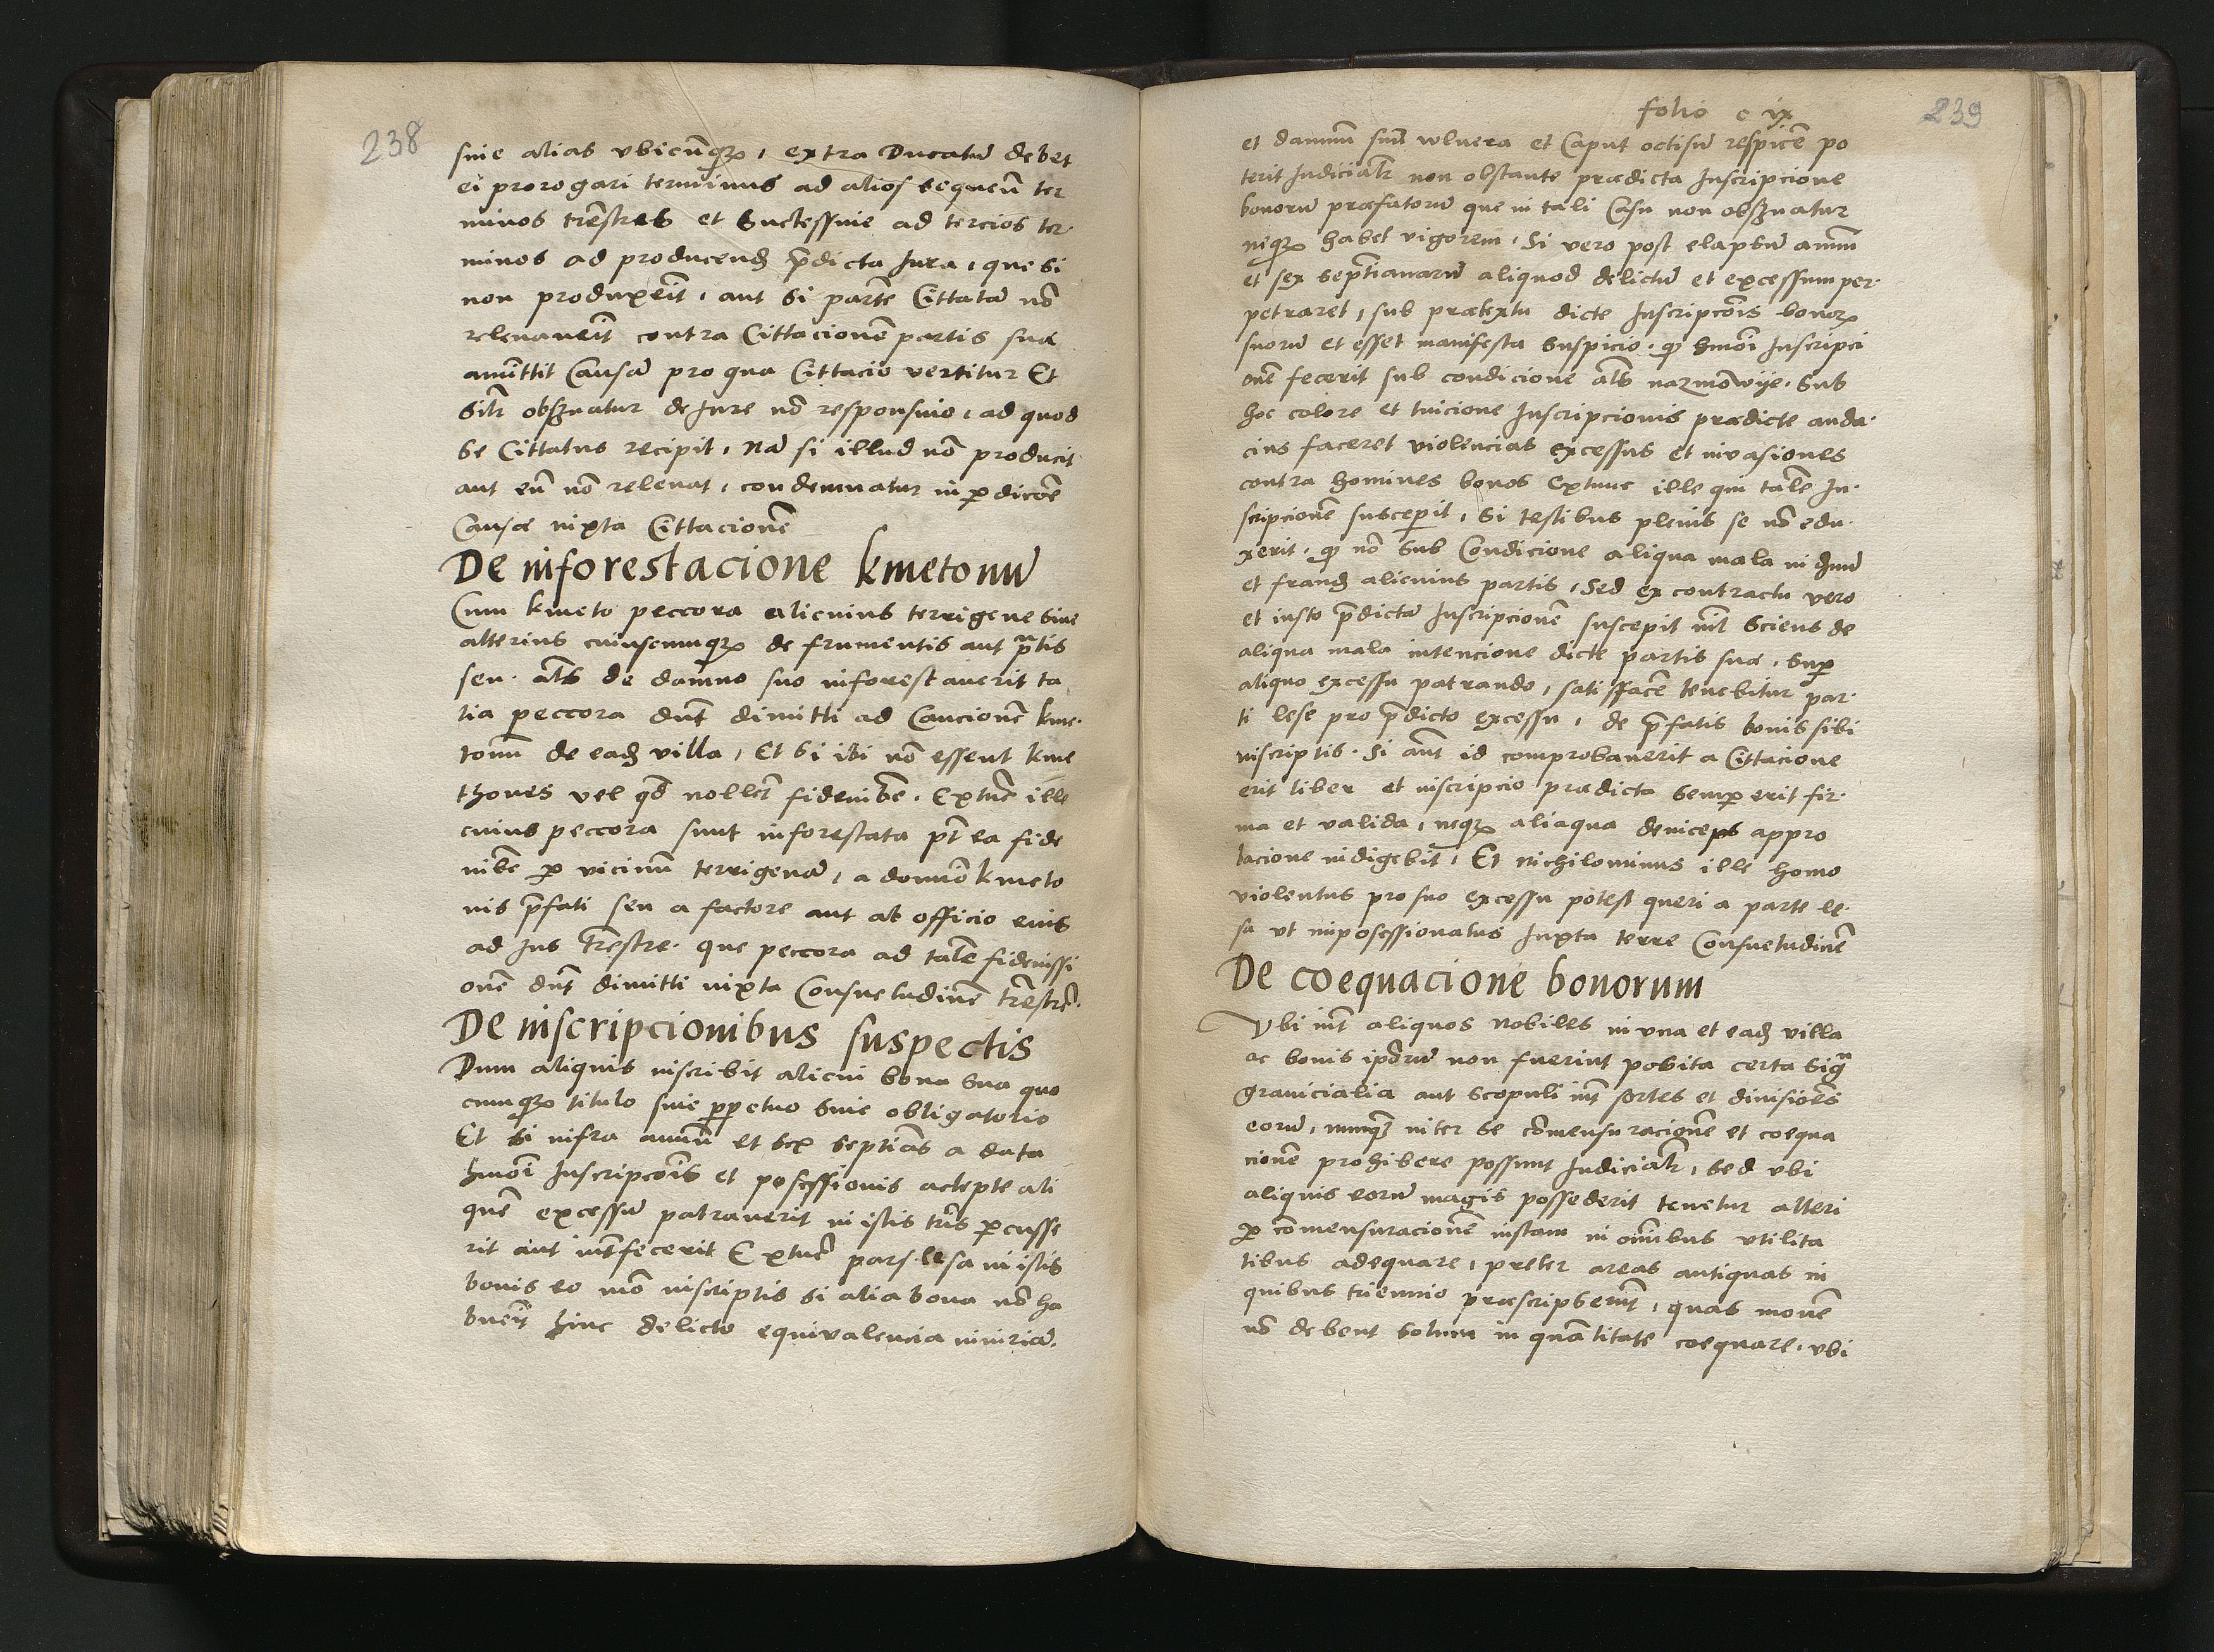 238
siue alias vbicũq₃, extra Ducatũ debet
ei prorogari terminus ad alios sequeñ ter
minos trẽstres et Suctessiue ad tercios ter
minos ad producend̃ p̃dicta Jura, que si
non produxerit̃, aut si parte Cittatã nõ
releuauerit̃ contra Cittacionẽ partis suæ
amittit Causã pro qua Cittacio vertitur Et
Silr̃ obseruatur de Jure nõ responsiuo, ad quod
se Cittatus recipit, Nã si illud nõ producit
aut eũ nõ releuat, condemnatur in p̱dicõẽ
Causæ iuxta Cittacionẽ
De inforestacione kmetonũ
Cum kmeto peccora alicuius terrigene siue
alterius cuiuscumq₃ de frumentis aut p̃tis
seu als̃ de damno suo inforestauerit ta
lia peccora dñt dimitti ad Caucionẽ kme
tonũ de ead̃ villa, Et si ibi nõ essent kme
thones vel qd̃ nollẽt fideiubẽ. Extũc ille
cuius peccora sunt inforestata pt̃ ea fide
iubẽ p̱ vicinũ terrigenã, a domõ kmeto
nis p̃fati seu a factore aut ab officio eius
ad Jus trẽstre. que peccora ad talẽ fideiussi
onẽ dñt dimitti iuxta Consuetudinẽ trẽstrẽ.
De inscripcionibus suspectis
Dum aliquis inscribit alicui bona sua quo
cumq₃ titulo siue p̱petuo siue obligatorio
Et si infra annũ et sex septiãs a data
hmõi Inscripcõis et posessionis actepte ali
quẽ excessũ patrauerit in istis tr̃is p̱cusse
rit aut int̃fecerit Extũc pars lesa in istis
bonis eo mõo inscriptis si alia bona nõ ha
buerit̃ huic delicto equivalencia iniuriã.
folio c ix
239
et damnũ suũ vulnera et Caput octisũ respicẽ po
terit Judicialr̃ non obstante prædicta Inscripcione
bonorũ præfatorũ que in tali Casu non obseruatur
neq₃ habet vigorem, Si vero post elapsũ annũ
et sex septĩanarũ aliquod delictũ et excessum per
petraret, sub prætextu dicte Inscripcõis bonor₃
suorũ et esset manifesta suspicio. q̃ hmõi Inscripci
onẽ fecerit sub condicione als̃ nazmowÿe. Sub
hoc colore et tuicione Inscripcionis prædicte auda
cius faceret violencias excessus et invasiones
contra homines bonos Extunc ille qui talẽ In
scripcionẽ susceperit, Si testibus plenis se nõ edu
xerit. q̃ nõ sub Condicione aliqua mala in dãnũ
et fraud̃ alicuius partis, Sed ex contractu vero
et iusto p̃dictã Inscripcionẽ suscepit nil̃ Sciens de
aliqua mala intencione dicte partis suæ, Sup̱
aliquo excessu patrando, satisfacẽ tenebitur par
ti lese pro p̃dicto excessu, de p̃fatis bonis sibi
inscriptis. Si aũt id comprobauerit a Cittacione
erit liber et inscripcio prædicta semp̱ erit fir
ma et valida, neq₃ aliaqua deinceps appro
bacione indigebit, Et nichilominus ille homo
violentus pro suo excessu potest queri a parte le
sa vt imposessionatus Juxta terre Consuetudinẽ
De coequacione bonorum
Vbi int̃ aliquos nobiles in vna et ead̃ villa
ac bonis ipõrũ non fuerint posita certa sign̄
granicialia aut scopuli int̃ sortes et diuisiones
eorũ, nunq₃ inter se cõmensuracionẽ et coequa
cionẽ prohibere possunt Judicialr̃, sed vbi
aliquis eorũ magis possederit tenetur alteri
p̱ cõmensuracionẽ iustam in oĩnibus vtilita
tibus adequare, preter areas antiquas in
quibus triennio præscripserint̃, quas mouẽ
nõ debent solum in quãtitate coequare, vbi